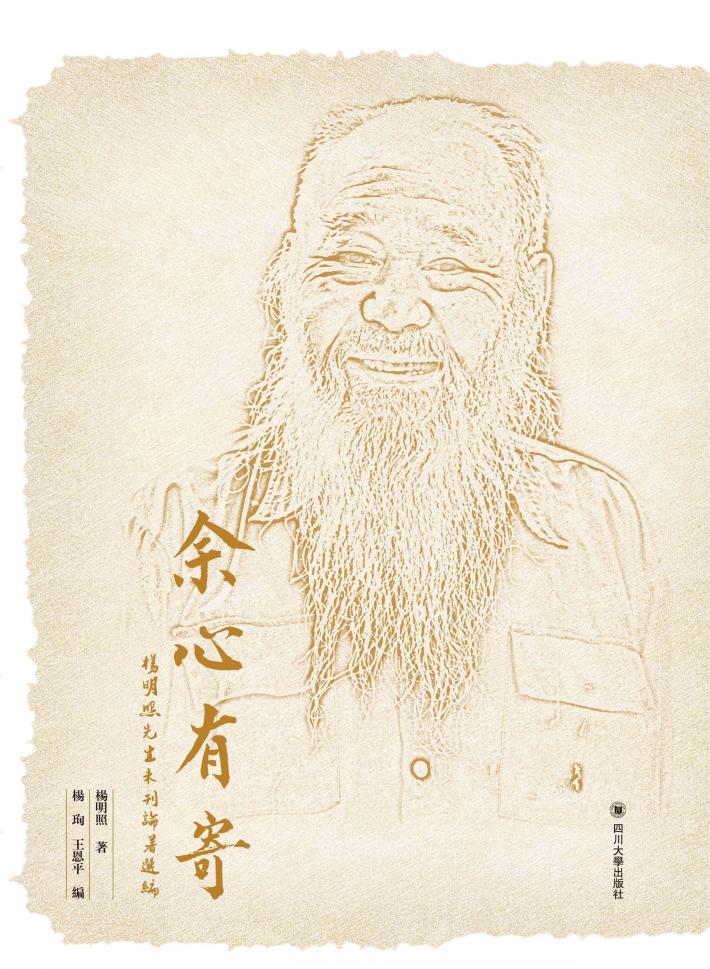 余心有寄
楊明照先生未刊論著選編
楊明照 著
楊珣 王恩平 編
四川大學出版社